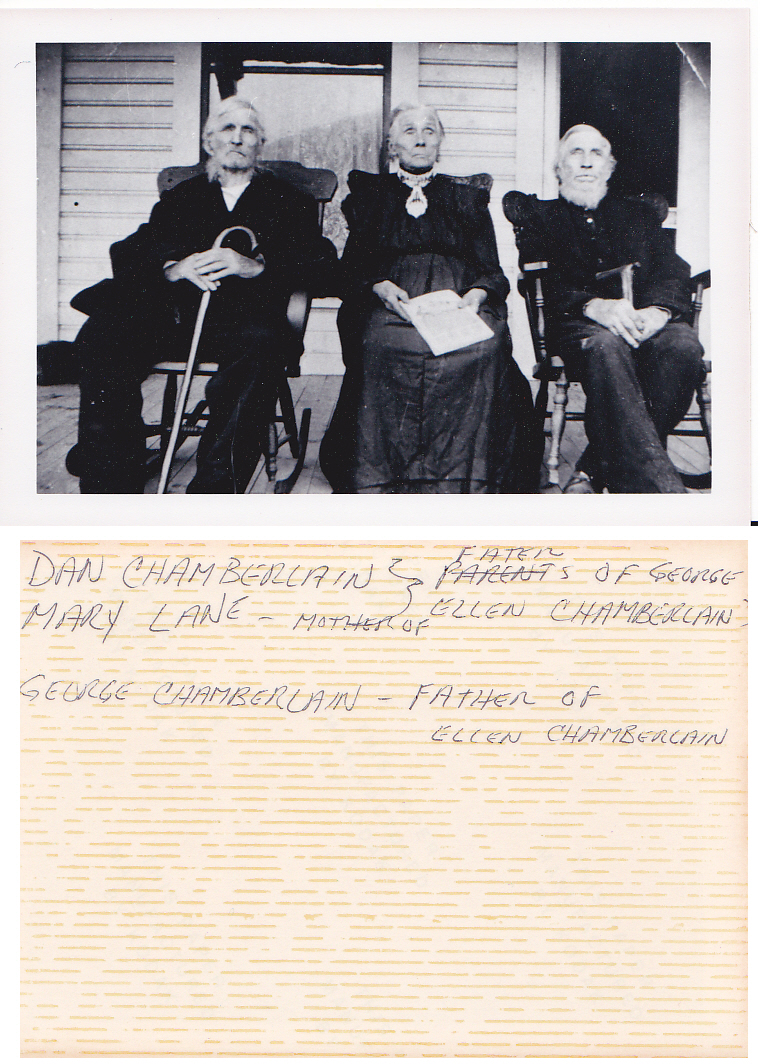 DAN CHAMBERLAIN } FATER PARENTS OF GEORGE
MARY LANE - MOTHER OF ELLEN CHAMBERLAIN
GEORGE CHAMBERLAIN - FATHER OF
ELLEN CHAMBERLAIN